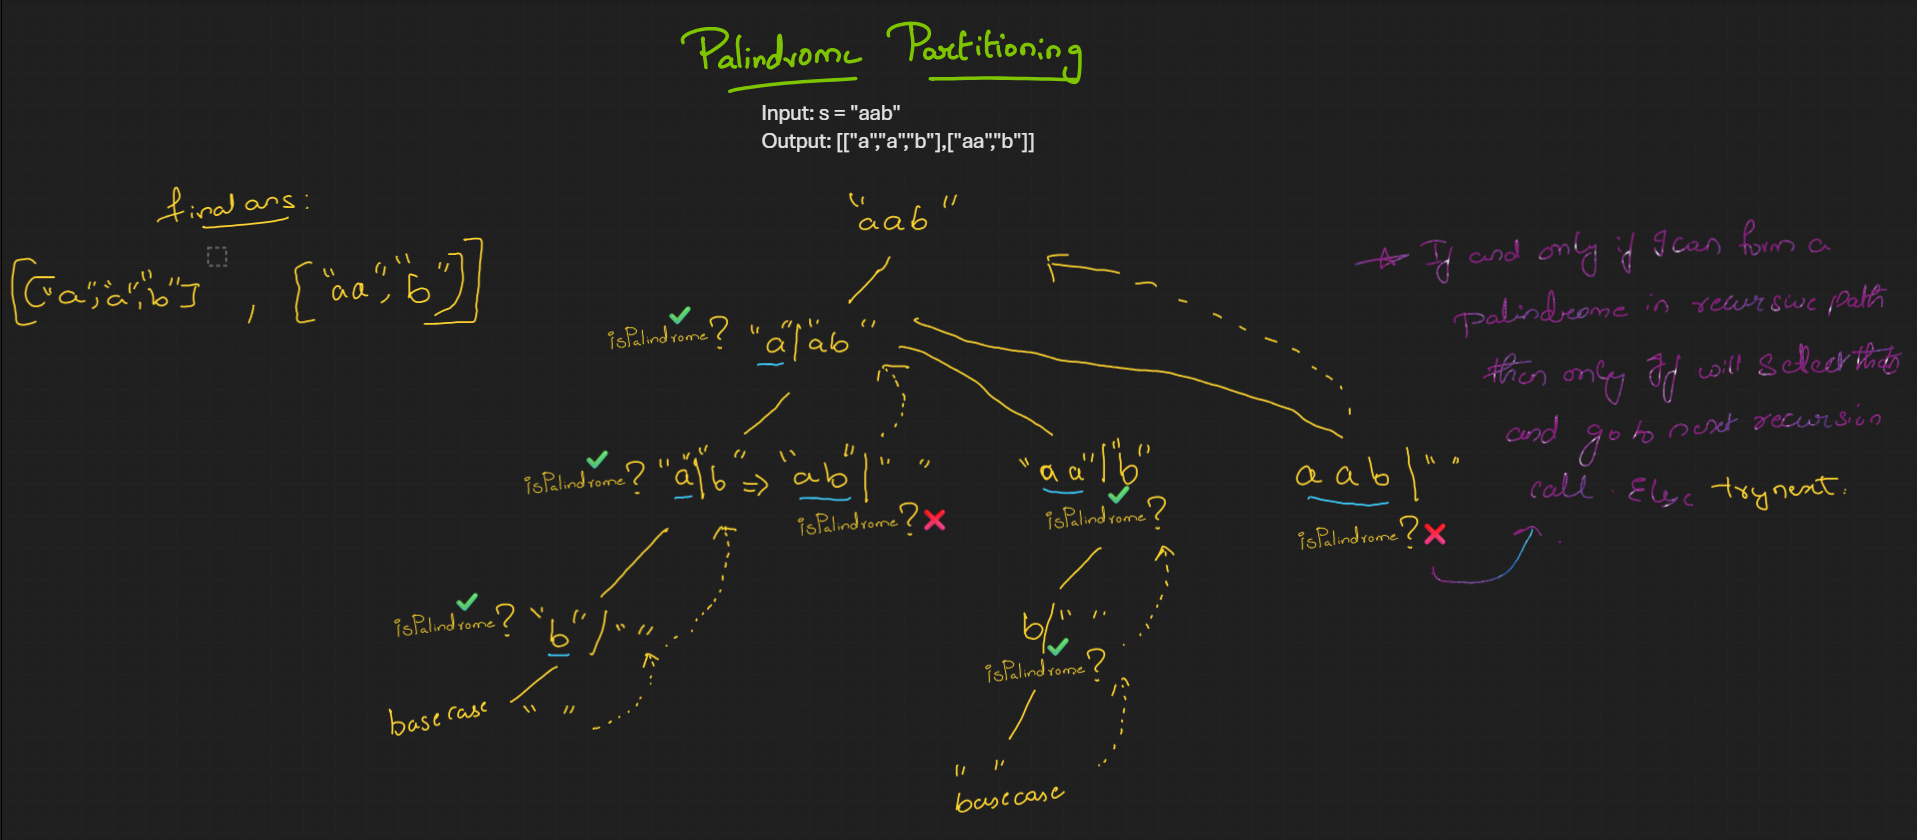 Palindrome Partitioning
Input: s = "aab"
Output: [["a","a","b"],["aa","b"]]
final ans:
[["a","a","b"] , ["aa","b"]]
"aab"
isPalindrome? "a"|"ab"
isPalindrome? "a"|"b" => "ab"|" "
isPalindrome?
"aa"|"b"
isPalindrome?
aab|" "
isPalindrome?
isPalindrome? "b"/" "
basecase " "
b/" "
isPalindrome?
" "
basecase
If and only if I can form a
palindrome in recursive path
then only I will select that
and go to next recursion
call. Else try next.